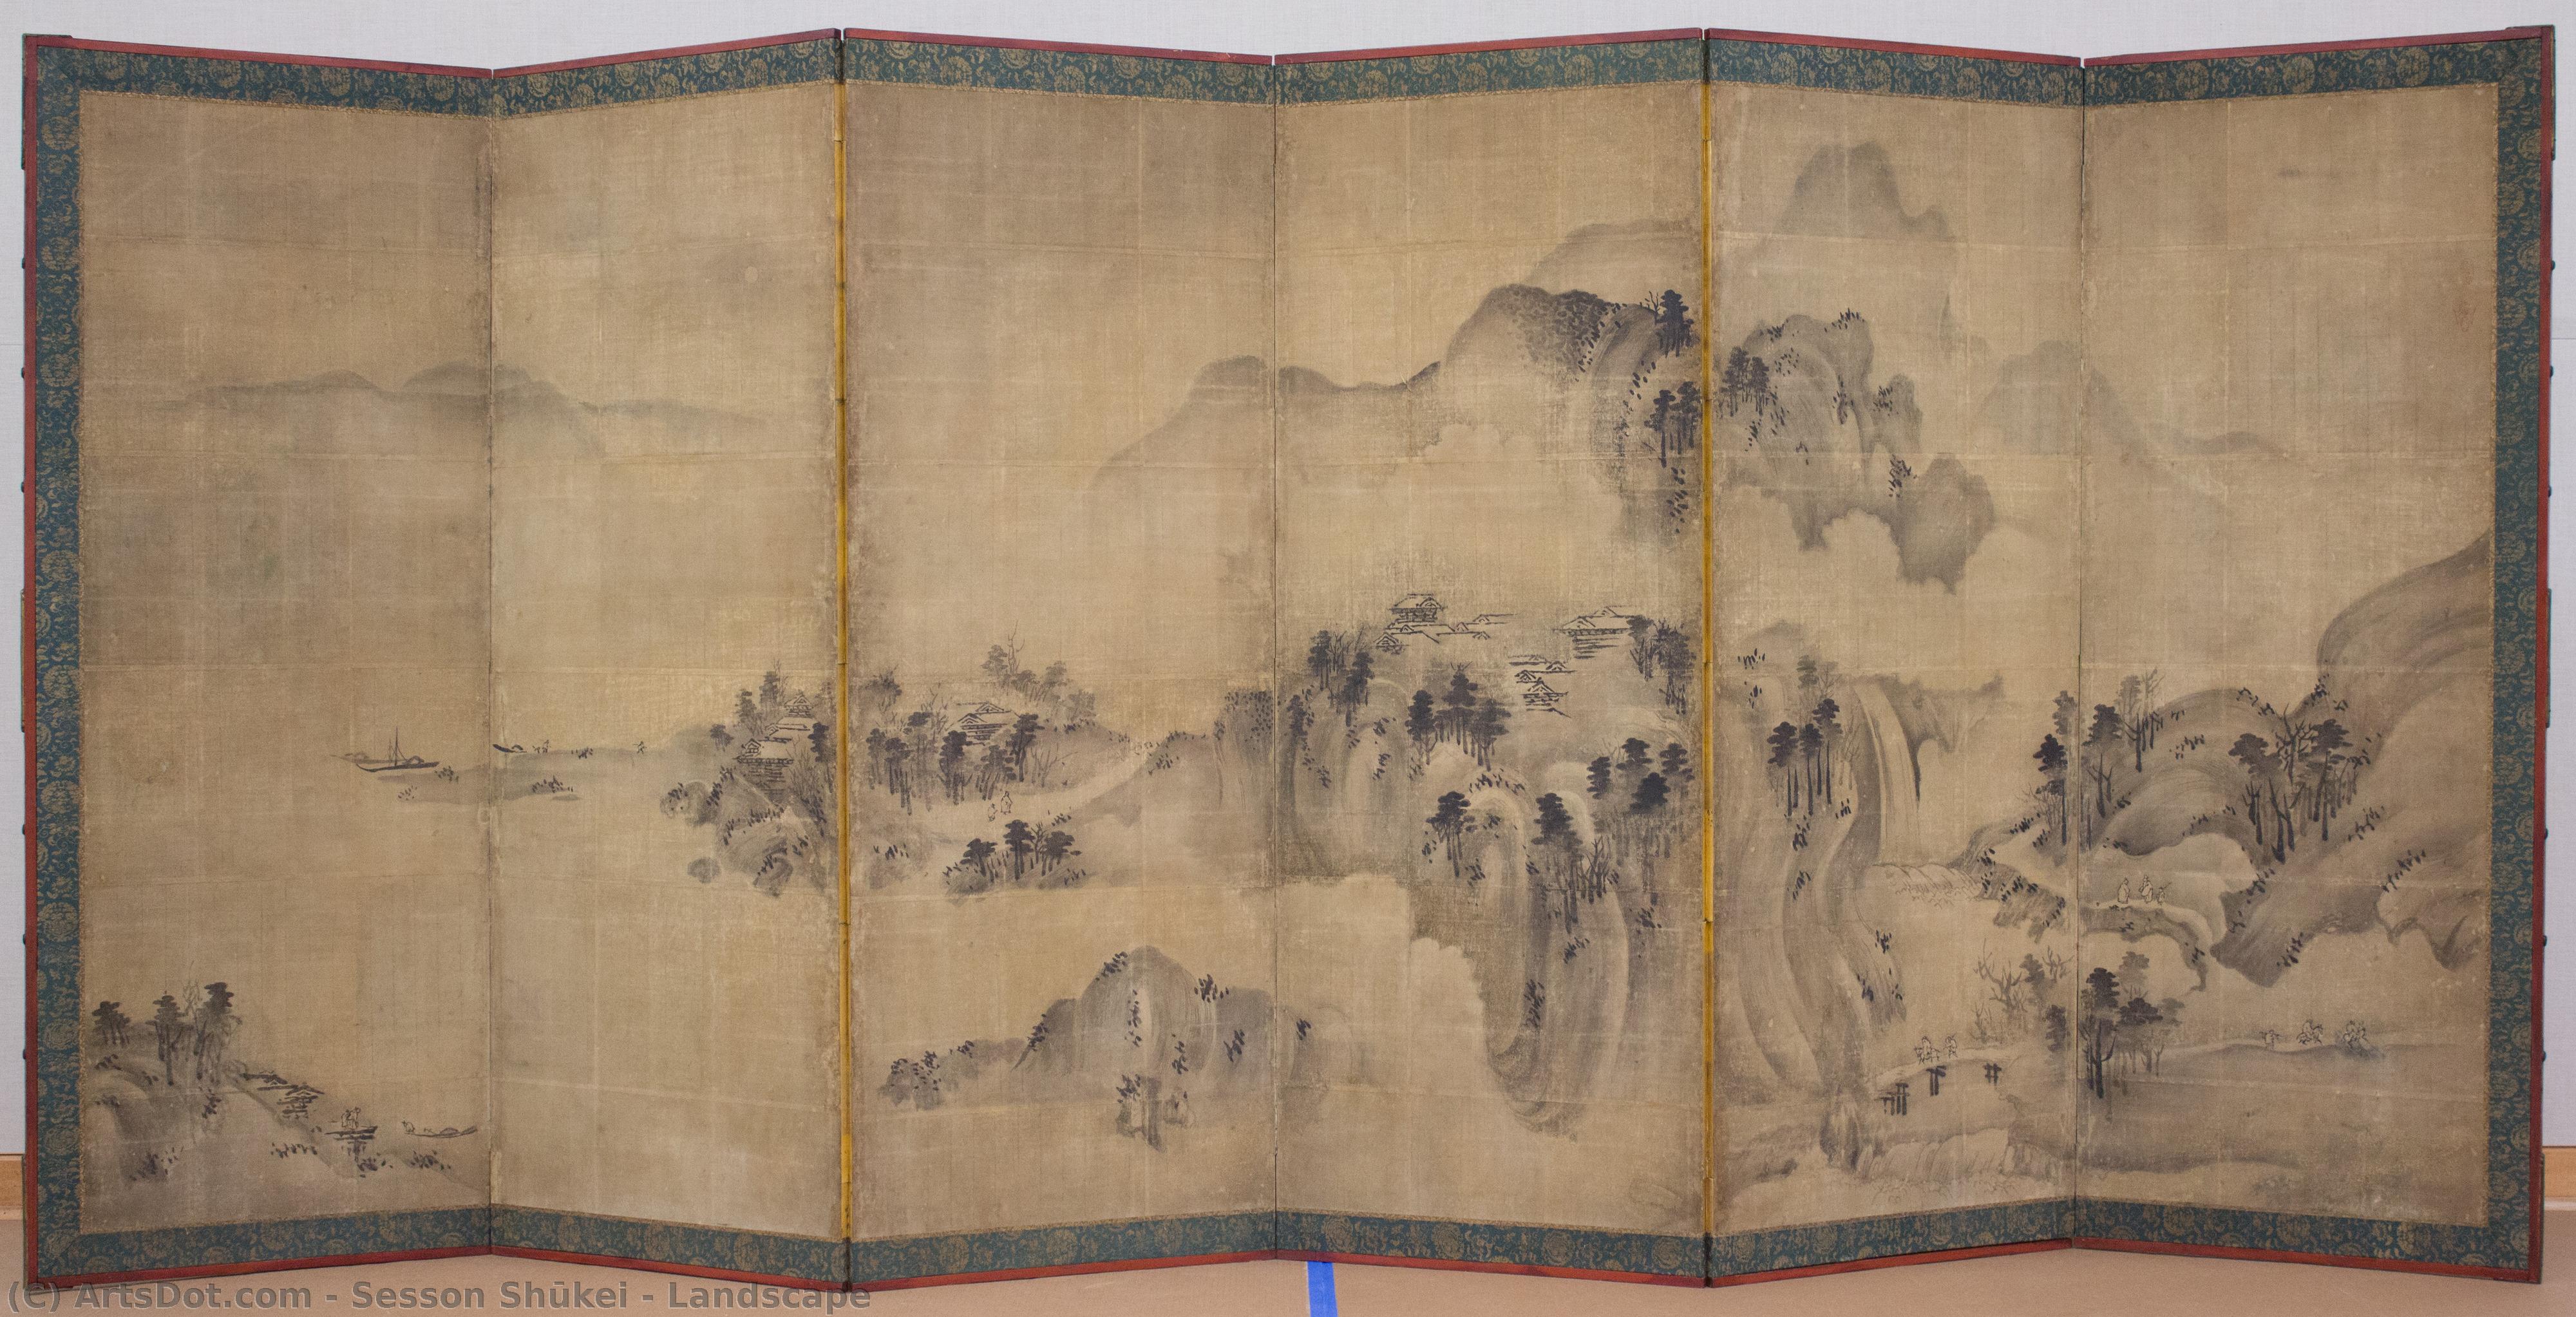 (C) ArtsDot.com - Sesson Shūkei - Landscape